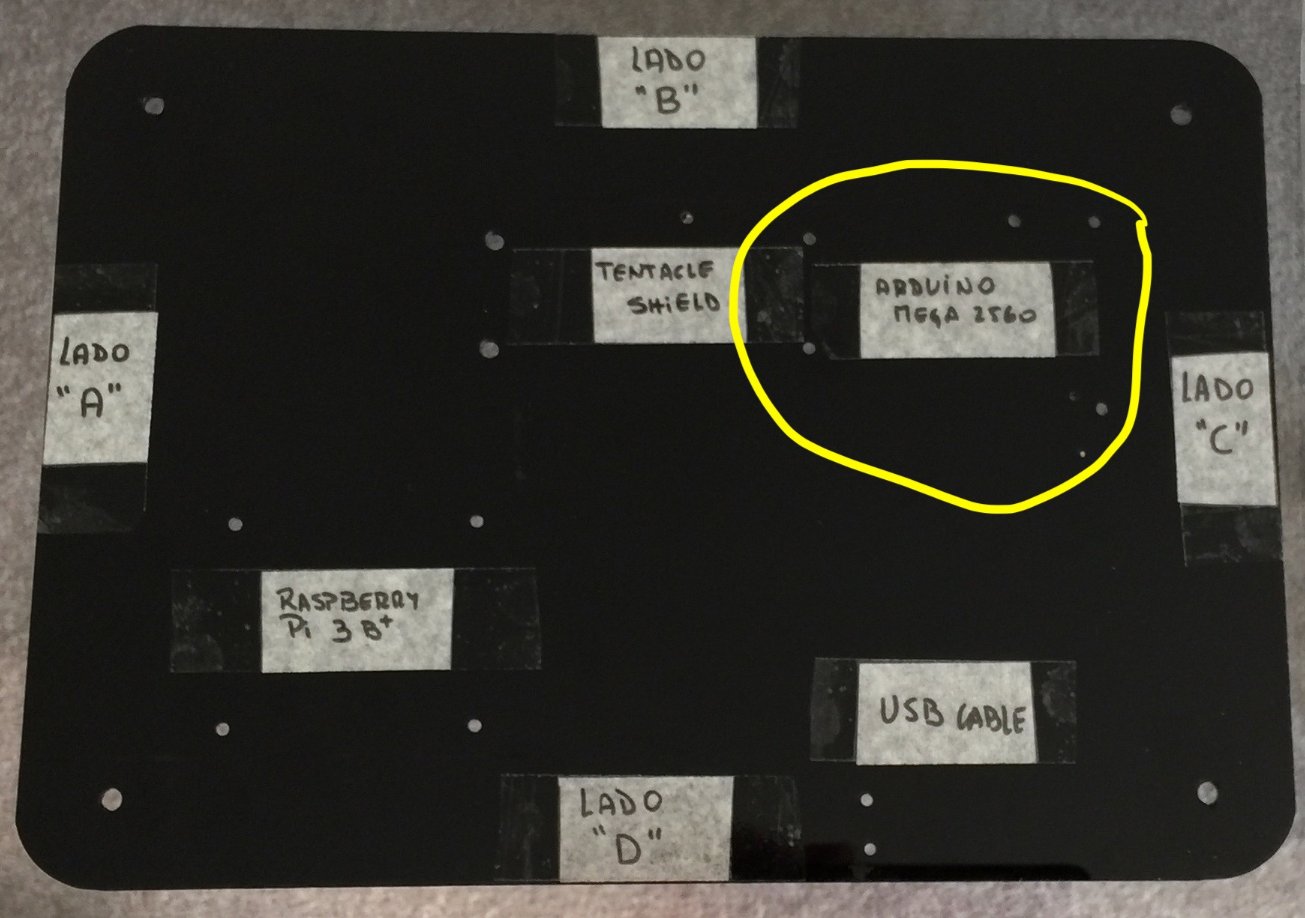 LADO
"B"
TENTACLE
SHiELD
ARDUiNO
MEGA 2560
LADO
"A"
LADO
"C"
RASPBERRY
Pi 3 B+
USB CABLE
LADO
"D"